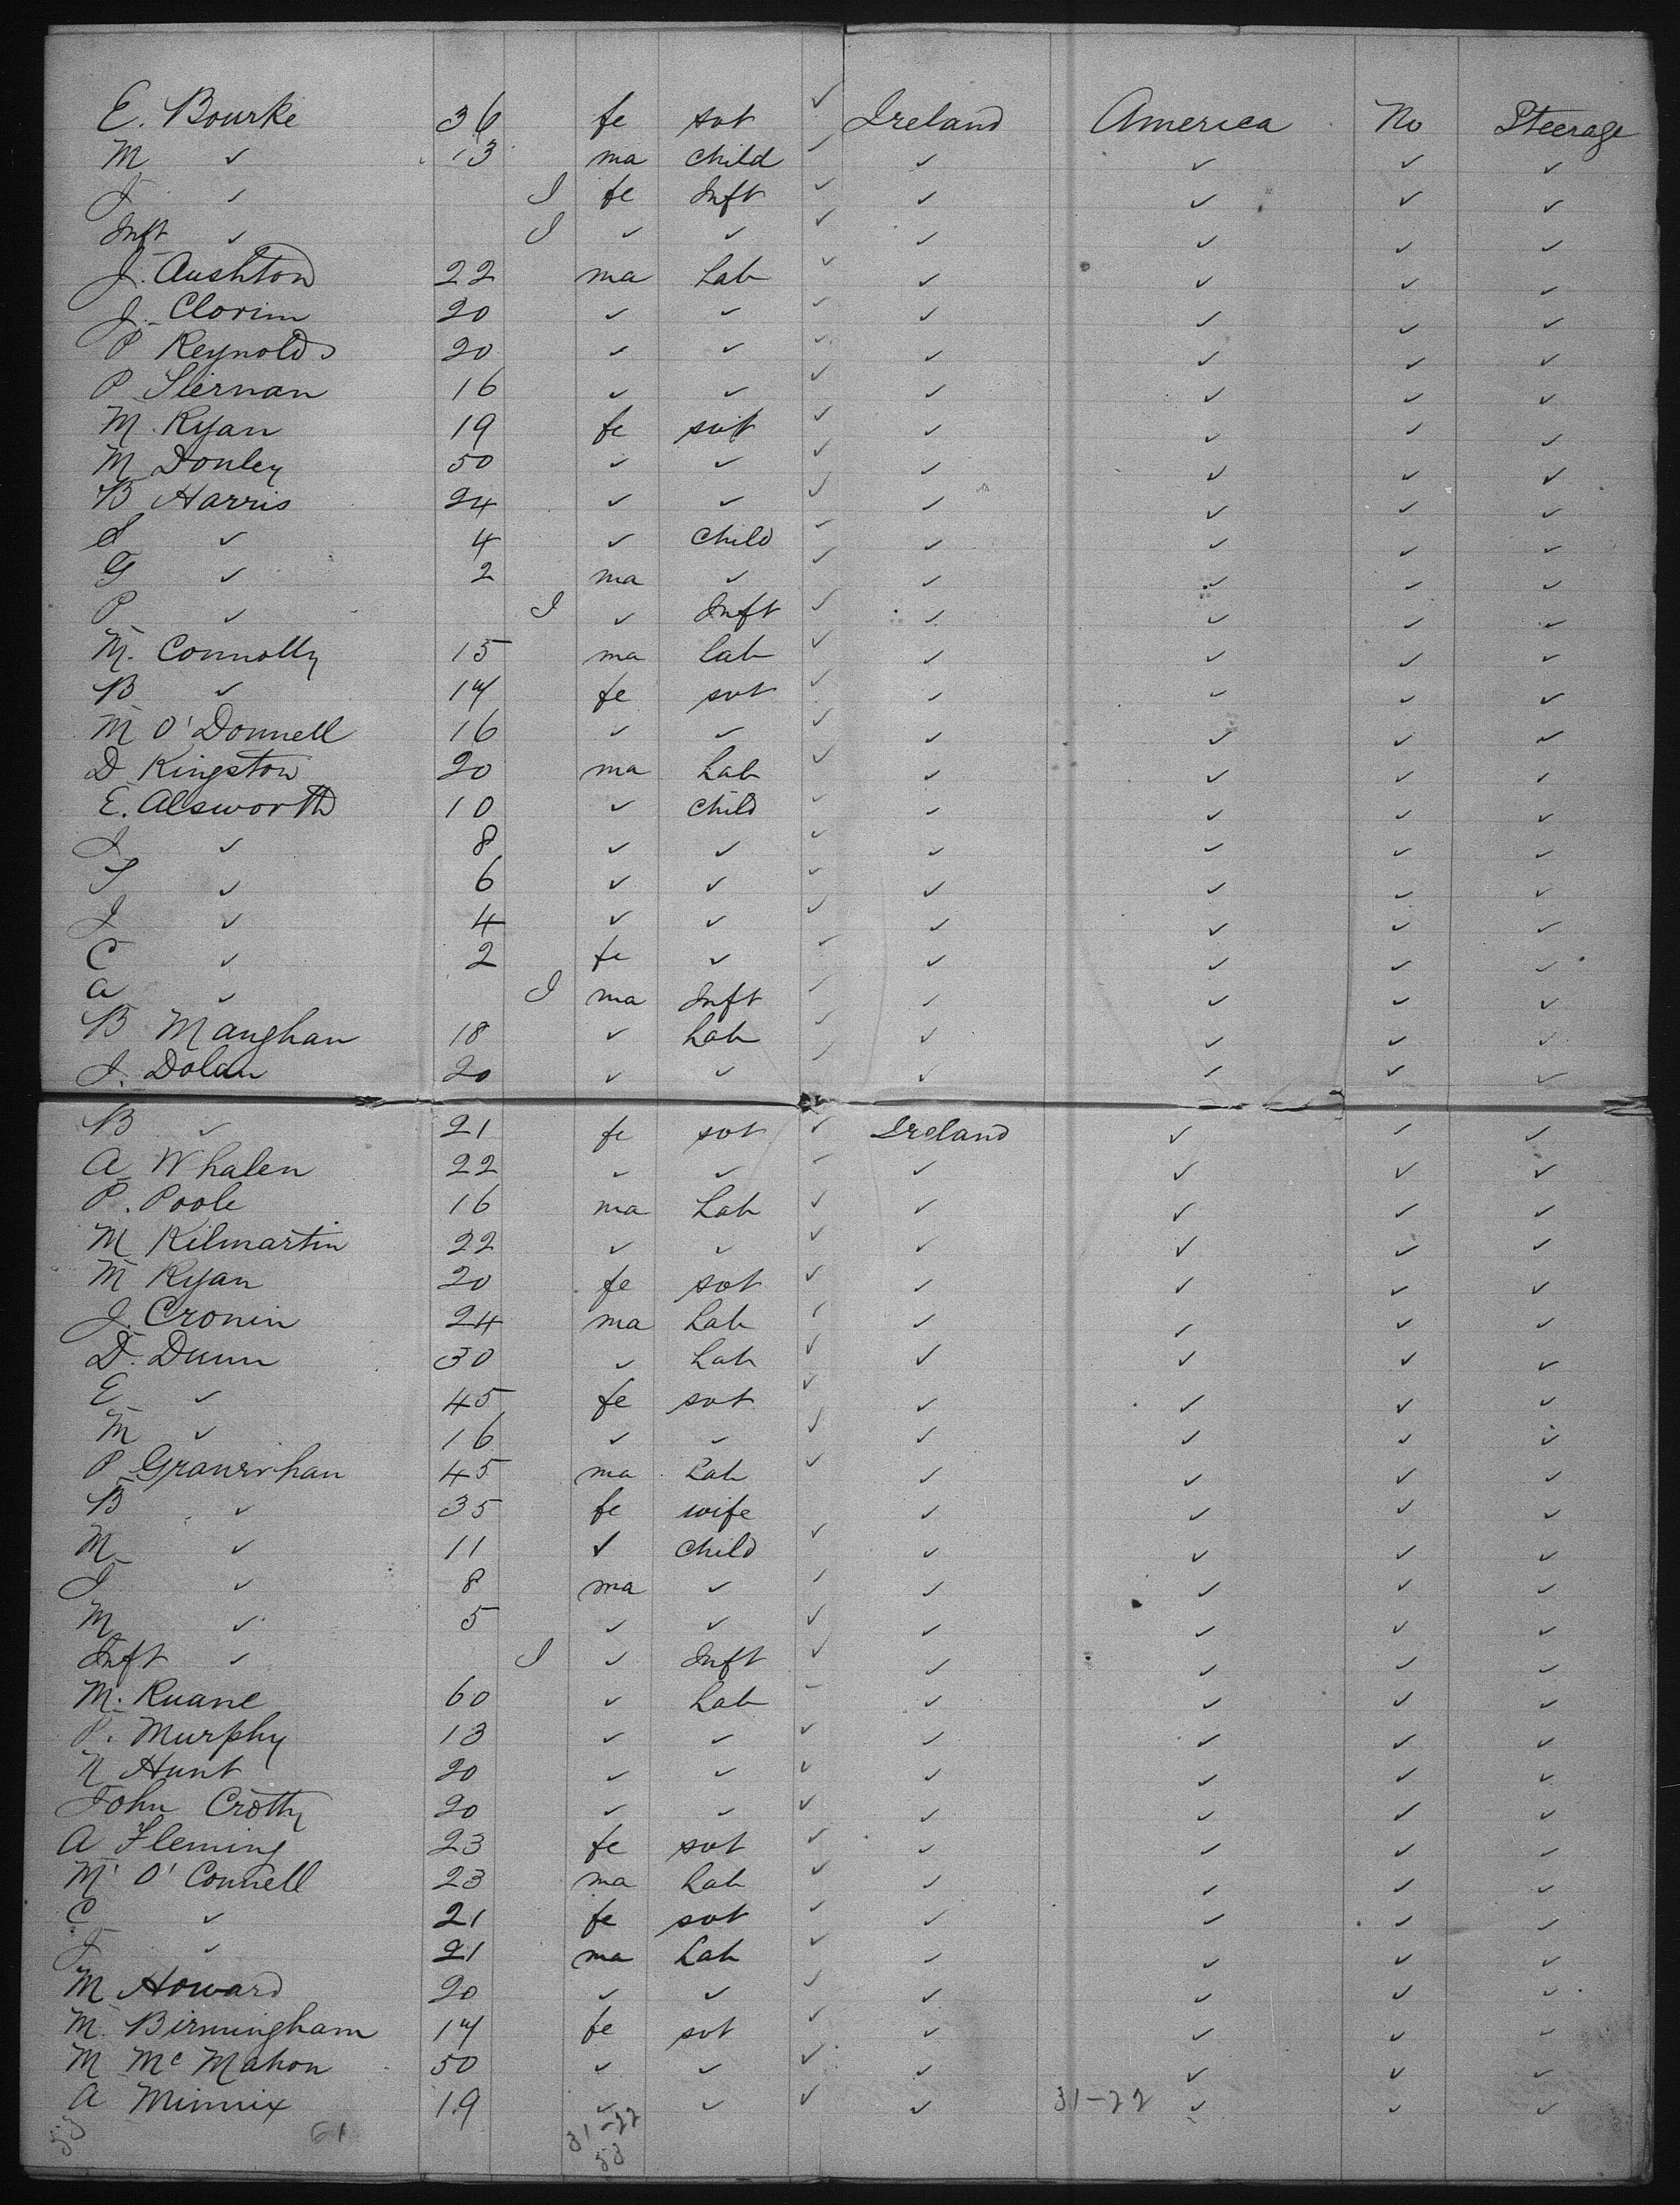 E. Bourke 36 fe svt ✓ Ireland America No Steerage
M ✓ 13 ma child ✓ ✓ ✓ ✓ ✓
J ✓ I fe Inft ✓ ✓ ✓ ✓ ✓
Inft ✓ I ✓ ✓ ✓ ✓ ✓ ✓ ✓
J. Aushton 22 ma Lab ✓ ✓ ✓ ✓ ✓
J. Clorim 20 ✓ ✓ ✓ ✓ ✓ ✓ ✓
P Reynolds 20 ✓ ✓ ✓ ✓ ✓ ✓ ✓
P Tiernan 16 ✓ ✓ ✓ ✓ ✓ ✓ ✓
M. Ryan 19 fe svt ✓ ✓ ✓ ✓ ✓
M Donley 50 ✓ ✓ ✓ ✓ ✓ ✓ ✓
B Harris 24 ✓ ✓ ✓ ✓ ✓ ✓ ✓
S ✓ 4 ✓ child ✓ ✓ ✓ ✓ ✓
G ✓ 2 ma ✓ ✓ ✓ ✓ ✓ ✓
P ✓ I ✓ Inft ✓ ✓ ✓ ✓ ✓
M. Connolly 15 ma Lab ✓ ✓ ✓ ✓ ✓
B ✓ 17 fe svt ✓ ✓ ✓ ✓ ✓
M O'Donnell 16 ✓ ✓ ✓ ✓ ✓ ✓ ✓
D Kingston 20 ma Lab ✓ ✓ ✓ ✓ ✓
E. Alsworth 10 ✓ child ✓ ✓ ✓ ✓ ✓
J ✓ 8 ✓ ✓ ✓ ✓ ✓ ✓ ✓
T ✓ 6 ✓ ✓ ✓ ✓ ✓ ✓ ✓
J ✓ 4 ✓ ✓ ✓ ✓ ✓ ✓ ✓
C ✓ 2 fe ✓ ✓ ✓ ✓ ✓ ✓
A ✓ I ma Inft ✓ ✓ ✓ ✓ ✓
B Manghan 18 ✓ Lab ✓ ✓ ✓ ✓ ✓
J. Dolan 20 ✓ ✓ ✓ ✓ ✓ ✓ ✓
B ✓ 21 fe svt ✓ Ireland ✓ ✓ ✓
A Whalen 22 ✓ ✓ ✓ ✓ ✓ ✓ ✓
P. Poole 16 ma Lab ✓ ✓ ✓ ✓ ✓
M Kilmartin 22 ✓ ✓ ✓ ✓ ✓ ✓ ✓
M Ryan 20 fe svt ✓ ✓ ✓ ✓ ✓
J. Cronin 24 ma Lab ✓ ✓ ✓ ✓ ✓
D. Dunn 30 ✓ Lab ✓ ✓ ✓ ✓ ✓
E ✓ 45 fe svt ✓ ✓ ✓ ✓ ✓
M ✓ 16 ✓ ✓ ✓ ✓ ✓ ✓ ✓
P 45 ma Lab ✓ ✓ ✓ ✓ ✓
B ✓ 35 fe wife ✓ ✓ ✓ ✓
M ✓ 11 ✓ child ✓ ✓ ✓ ✓ ✓
J ✓ 8 ma ✓ ✓ ✓ ✓ ✓ ✓
M ✓ 5 ✓ ✓ ✓ ✓ ✓ ✓ ✓
Inft ✓ I ✓ Inft ✓ ✓ ✓ ✓ ✓
M. Ruane 60 ✓ Lab ✓ ✓ ✓ ✓ ✓
P. Murphy 13 ✓ ✓ ✓ ✓ ✓ ✓ ✓
N Hunt 20 ✓ ✓ ✓ ✓ ✓ ✓ ✓
John Crotty 20 ✓ ✓ ✓ ✓ ✓ ✓ ✓
A Fleming 23 fe svt ✓ ✓ ✓ ✓ ✓
M' O'Connell 23 ma Lab ✓ ✓ ✓ ✓ ✓
C ✓ 21 fe svt ✓ ✓ ✓ ✓ ✓
J ✓ 21 ma Lab ✓ ✓ ✓ ✓ ✓
M Howard 20 ✓ ✓ ✓ ✓ ✓ ✓ ✓
M. Birmingham 17 fe svt ✓ ✓ ✓ ✓ ✓
M McMahon 50 ✓ ✓ ✓ ✓ ✓ ✓ ✓
A Minnix 19 ✓ ✓ ✓ ✓ 31-22 ✓ ✓ ✓
53 61 31-22
53